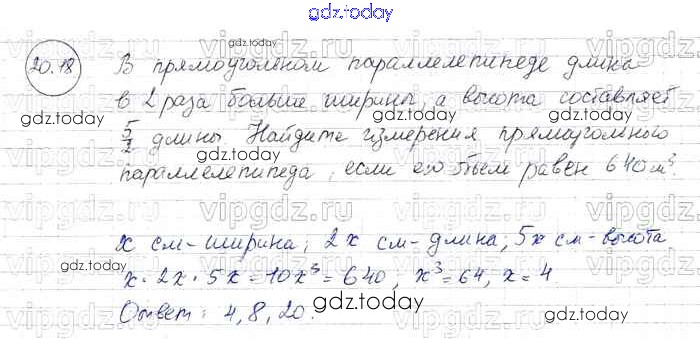 gdz.today
20.18 В прямоугольном параллелепипеде длина
в 2 раза больше ширины, а высота составляет
5/2 длины. Найдите измерения прямоугольного
параллелепипеда, если его объем равен 640 м³.
x см-ширина; 2x см-длина; 5x см-высота
x·2x·5x=10x³=640; x³=64, x=4
Ответ: 4, 8, 20.
gdz.today